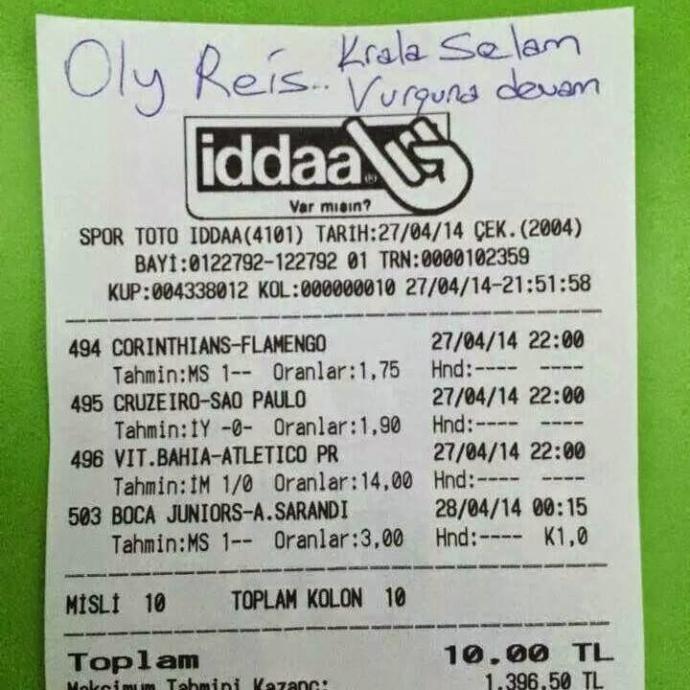 Oly Reis.. Krala Selam
Vurguna devam
iddaa
Var mısın?
SPOR TOTO IDDAA(4101) TARIH:27/04/14 ÇEK.(2004)
BAYİ:0122792-122792 01 TRN:0000102359
KUP:004338012 KOL:000000010 27/04/14-21:51:58
494 CORINTHIANS-FLAMENGO 27/04/14 22:00
Tahmin:MS 1-- Oranlar:1,75 Hnd:---- ----
495 CRUZEIRO-SAO PAULO 27/04/14 22:00
Tahmin:İY -0- Oranlar:1,90 Hnd:---- ----
496 VIT.BAHIA-ATLETICO PR 27/04/14 22:00
Tahmin:İM 1/0 Oranlar:14,00 Hnd:---- ----
503 BOCA JUNIORS-A.SARANDI 28/04/14 00:15
Tahmin:MS 1-- Oranlar:3,00 Hnd:---- K1,0
MİSLİ 10 TOPLAM KOLON 10
Toplam 10.00 TL
Maksimum Tahmini Kazanç: 1.396,50 TL